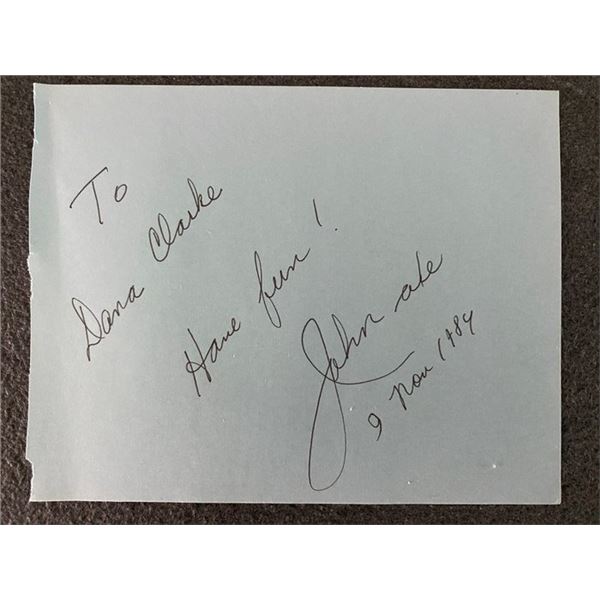 To
Dana Clarke
Have fun!
John
9 Nov 1984